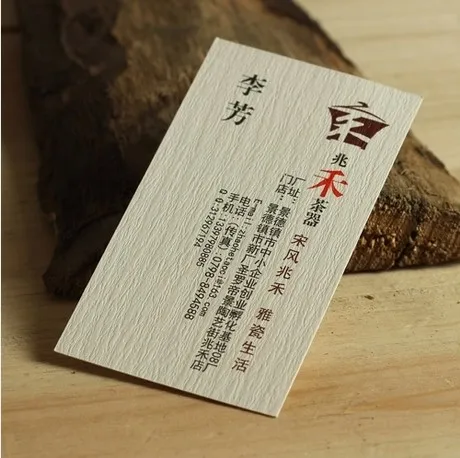 兆禾茶器
宋风兆禾 雅瓷生活
厂址：景德镇市中小企业创业孵化基地08厂
门店：景德镇市新厂圣罗帝景陶艺街兆禾店
E-mail：zhaohetaoci@163.com
电话：（传真）0798-8494588
手机：
Q Q：312967194
李芳